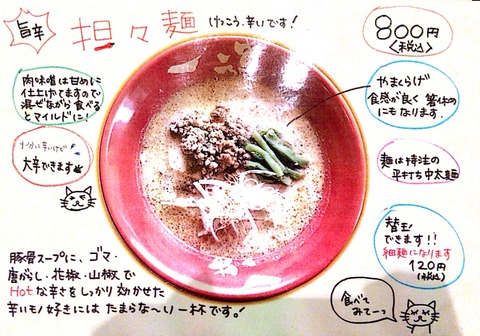 旨辛
担々麺
けっこう辛いです!
肉味噌は甘めに
仕上げてますので
混ぜながら食べる
とマイルドに!
十分に辛いけど
大辛できます
豚骨スープに、ゴマ・
唐がらし・花椒・山椒で
Hotな辛さをしっかり効かせた
辛いもの好きには たまらな〜い一杯です!
800円
<税込>
やまくらげ
食感が良く 箸休め
にもなります.
麺は特注の
平打ち中太麺
替玉
できます!!
細麺になります
120円
(税込)
食べて
みてーっ